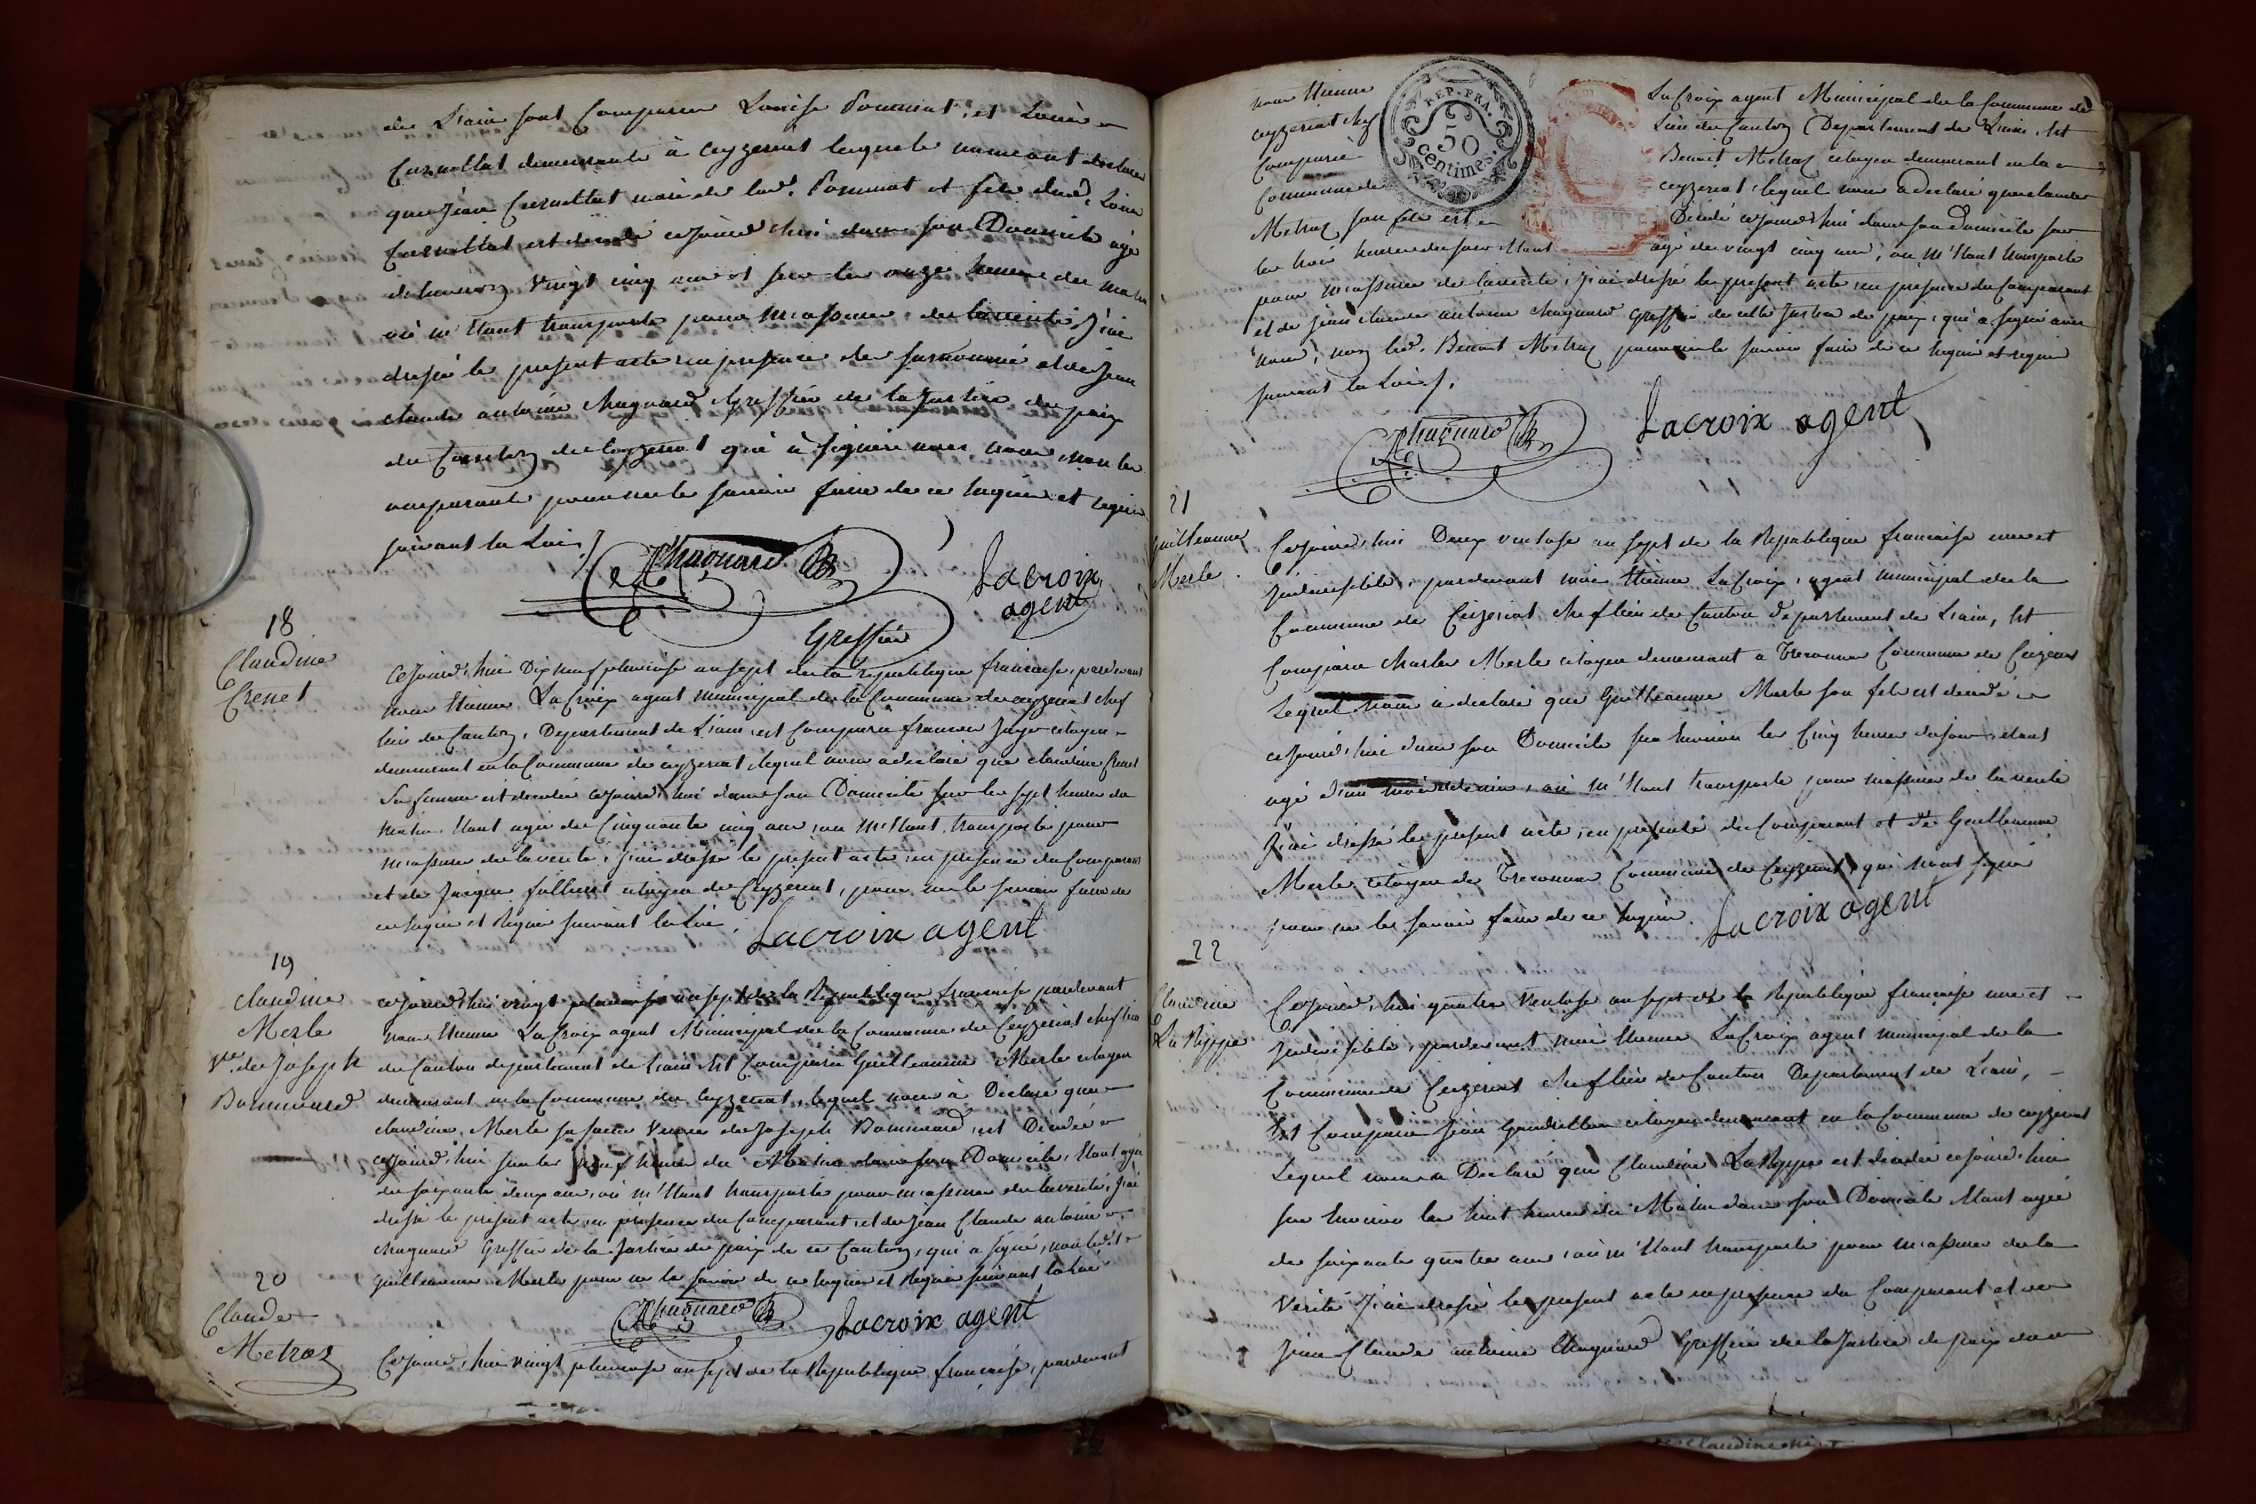 de L'ain sont Comparu Louise Pommat, et Louis
Cursillat demeurants à Ceyzeriat lesquels nous ont declaré
que Jean Cursillat mari de lad. Pommat et fils dud. Louis
Cursillat est decedé cejourd'hui dans son Domicile agé
d'environ vingt cinq ans et sur les onze heures du matin
où m'étant transporté pour m'assurer de la verité, J'ai
dressé le present acte en presence des surnommés et de Jean
claude antoine Chaguard Greffier de la Justice de paix
du Canton de Ceyzeriat qui à signéré avec nous non les
comparants pour ne le savoir faire de ce enquis et requis
suivant la Loi /.
Chaguard
Greffier
Lacroix
agent
18
Claudine
Crenet
Cejourd'hui Dix neuf pluviose an sept de la republique francaise, pardevant
nous Etienne LaCroix agent municipal de la Commune de ceyzeriat chef
lieu de Canton, Departement de L'ain, est Comparu francois Juge citoyen
demeurant en la Commune de ceyzeriat, lequel nous a declaré que claudine Crenet
Sa femme est decedée cejourd'hui dans son Domicile sur les sept heures du
matin étant agée de Cinquante cinq ans, ou m'étant transporté pour
m'assurer de la verité, j'ai dressé le present acte en presence du Comparant
et de Jacques follliet citoyen de Ceyzeriat, pour ne le savoir faire de
ce enquis et Requis suivant la Loi.
Lacroix agent
19
claudine
Merle
Ve. de Joseph
Bommard
cejourd'hui vingt pluviose an sept de la Republique francaise pardevant
nous Etienne LaCroix agent Municipal de la Commune de Ceyzeriat chef lieu
de Canton departement de L'ain Est Comparu Guilleaume Merle citoyen
demeurant en la Commune de Ceyzeriat, lequel nous à Declaré que
claudine Merle sa soeur veuve de Joseph Bommard, est Decedée
cejourd'hui sur les neuf heures du Matin dans son Domicile, étant agée
de soixante deux ans, où m'étant transporté pour m'assurer de la verité, j'ai
dressé le present acte en presence du Comparant, et de Jean Claude antoine
chaguard Greffier de la Justice de paix de ce Canton, qui a signé, non led. t
guilleaume Merle pour ne le savoir de ce enquis et Requis suivant la Loi
Chaguard
Lacroix agent
20
Claude
Metraz
Cejourd'hui vingt pluviose an sept de la Republique francaise, pardevant
nous Etienne
LaCroix agent Municipal de la Commune de
ceyzeriat chef
Lieu de Canton Departement de L'ain Est
Comparu
Benoit Metraz citoyen demeurant en la
Commune de
ceyzeriat, lequel nous a declaré que claude
Metraz son fils est
Decedé cejourd'hui dans son domicile sur
les trois heures du soir étant
agé de vingt cinq ans, où m'étant transporté
pour m'assurer de la verité, J'ai dressé le present acte en presence du Comparant
et de Jean claude antoine chaguard Greffier de cette Justice de paix, qui a signé avec
nous, non led. Benoit Metraz pour ne le savoir faire de ce enquis et requis
suivant la Loi /.
Chaguard
Lacroix agent
21
Guilleaume
Merle
Cejourd'hui Deux ventose an sept de la Republique francaise une et
Indivisible, pardevant moi Etienne LaCroix, agent municipal de la
Commune de Ceizeriat chef lieu de Canton departement de L'ain, Est
Comparu charles Merle citoyen demeurant a Treconnas Commune de Ceizeriat
Lequel nous a declaré que Guilleaume Merle son fils est decedé
cejourd'hui dans son Domicile sur environ les Cinq heures du soir, étant
agé d'un mois et demi, où m'étant transporté pour m'assurer de la verité
J'ai dressé le present acte, en presence du Comparant et de Guilleaume
Merle citoyen de Treconnas Commune de Ceyzeriat, qui n'ont signé
pour ne le savoir faire de ce enquis.
Lacroix agent
22
Claudine
La Ryppe
Cejourd'hui quatre Ventose an sept de la Republique francaise une et
Indivisible, pardevant moi Etienne LaCroix agent municipal de la
Commune de Ceizeriat chef lieu de Canton Departement de L'ain,
Est Comparu Jean Goudilland citoyen demeurant en la Commune de ceyzeriat
Lequel nous a Declaré que Claudine LaRyppe est decedée cejourd'hui
sur environ les huit heures du Matin dans son Domicile étant agée
de soixante quatre ans, où m'étant transporté pour m'assurer de la
Verité J'ai dressé le present acte en presence du Comparant et de
Jean Claude antoine Chaguard Greffier de la Justice de paix de
REP. FRA.
50
centimes.